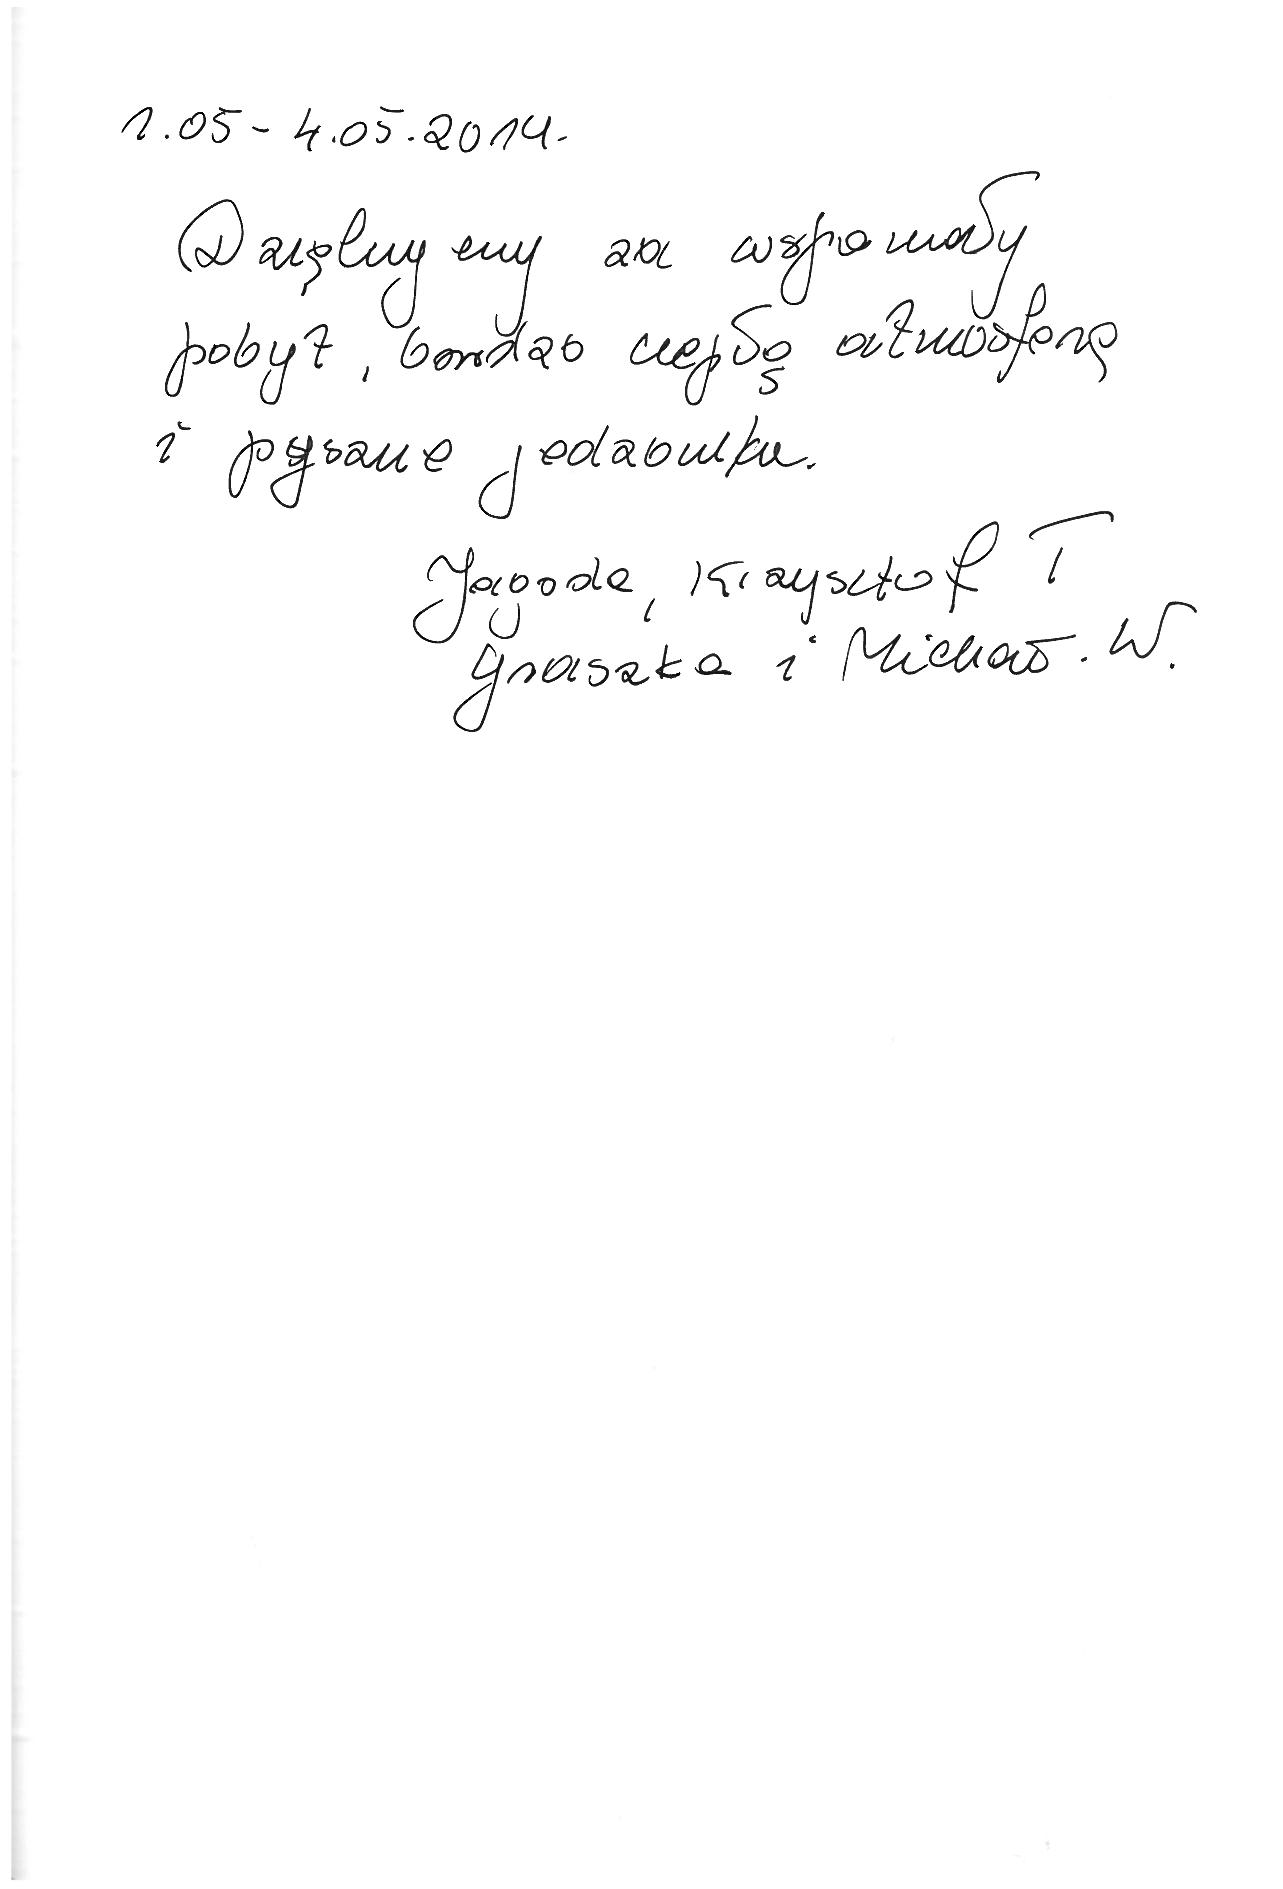 1.05 - 4.05.2014.
Dziękujemy za wspaniały
pobyt, bardzo ciepłą atmosferę
i pyszne jedzonko.
Jagoda, Krzysztof T
Graszka i Michał. W.